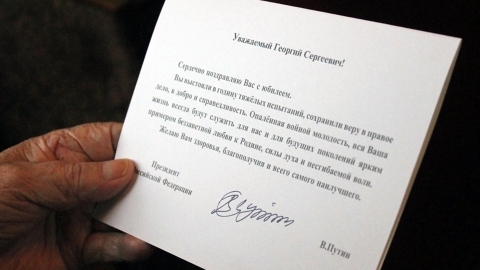 Уважаемый Георгий Сергеевич!
Сердечно поздравляю Вас с юбилеем.
Вы выстояли в годину тяжёлых испытаний, сохранили веру в правое
дело, в добро и справедливость. Опалённая войной молодость, вся Ваша
жизнь всегда будут служить для нас и для будущих поколений ярким
примером беззаветной любви к Родине, силы духа и несгибаемой воли.
Желаю Вам здоровья, благополучия и всего самого наилучшего.
Президент
ссийской Федерации
В.Путин